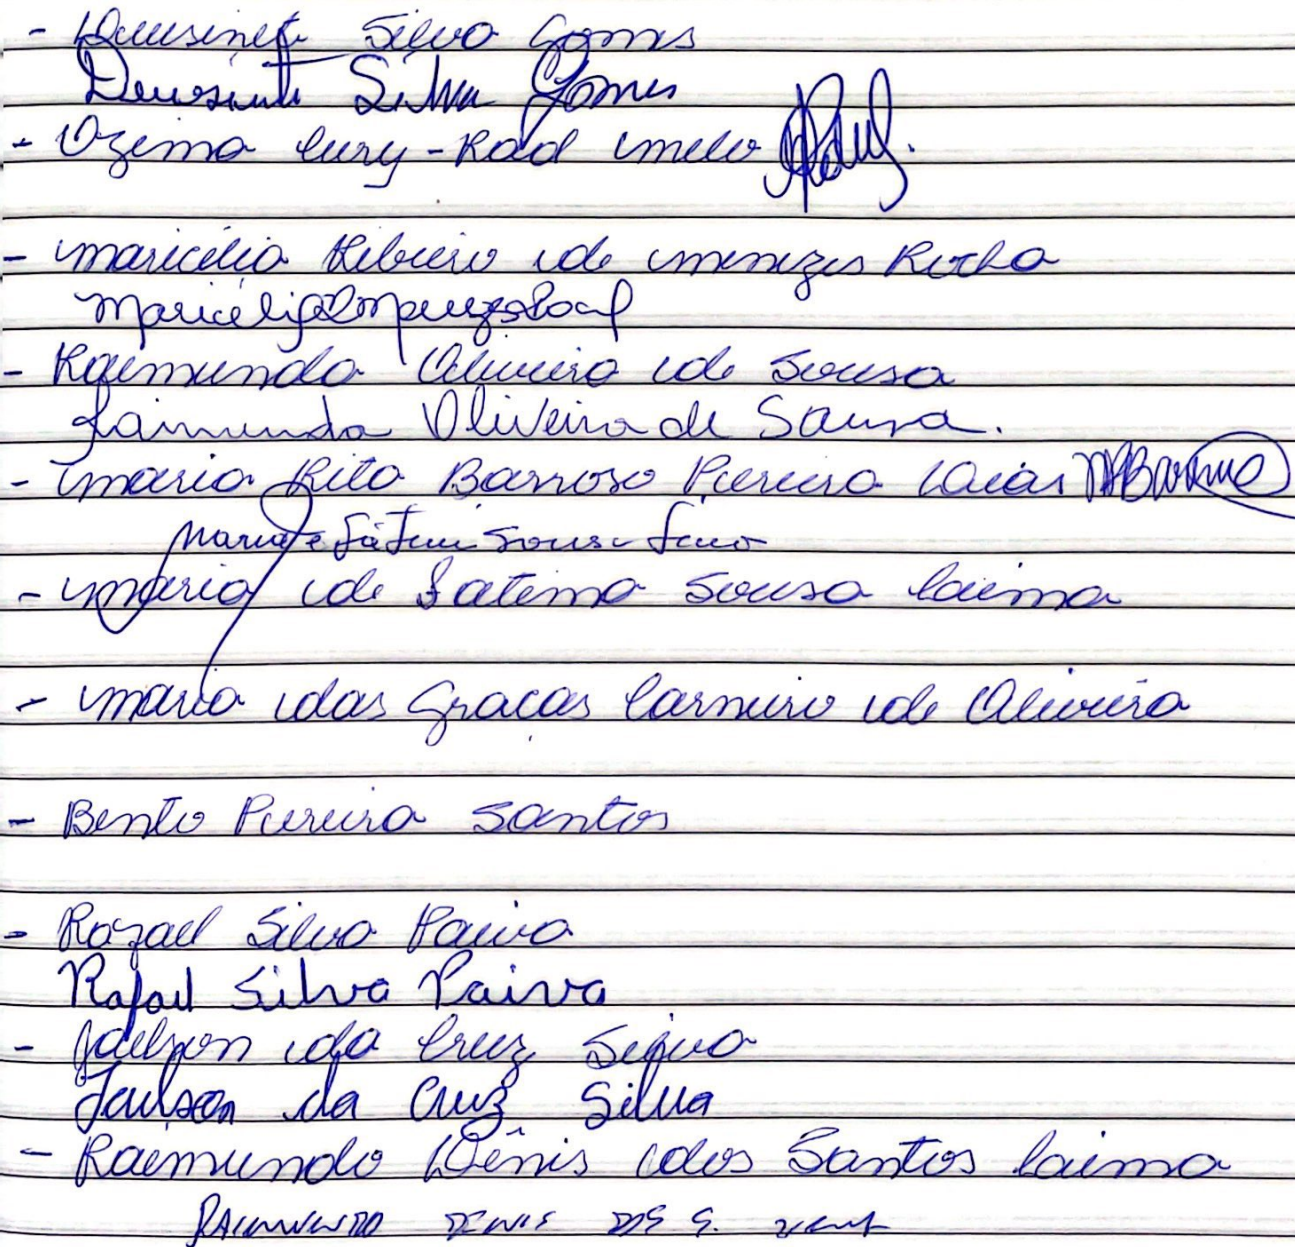 - Deusinete Silva Gomes
Deusinete Silva Gomes
- Ozima Cury-Rad Melo
- Maricélia Ribeiro de Menezes Rocha
- Raimunda Oliveira de Sousa
Raimunda Oliveira de Sousa.
- Maria Rita Barroso Pereira Dias
Maria de Fátima Sousa Lima
- Maria de Fatima Sousa Lima
- Maria das Graças Carneiro de Oliveira
- Bento Pereira Santos
- Rafael Silva Paiva
Rafael Silva Paiva
- Jaelson da Cruz Silva
Jaelson da Cruz Silva
- Raimundo Dênis dos Santos Lima
RAIMUNDO DENIS DOS S. LIMA